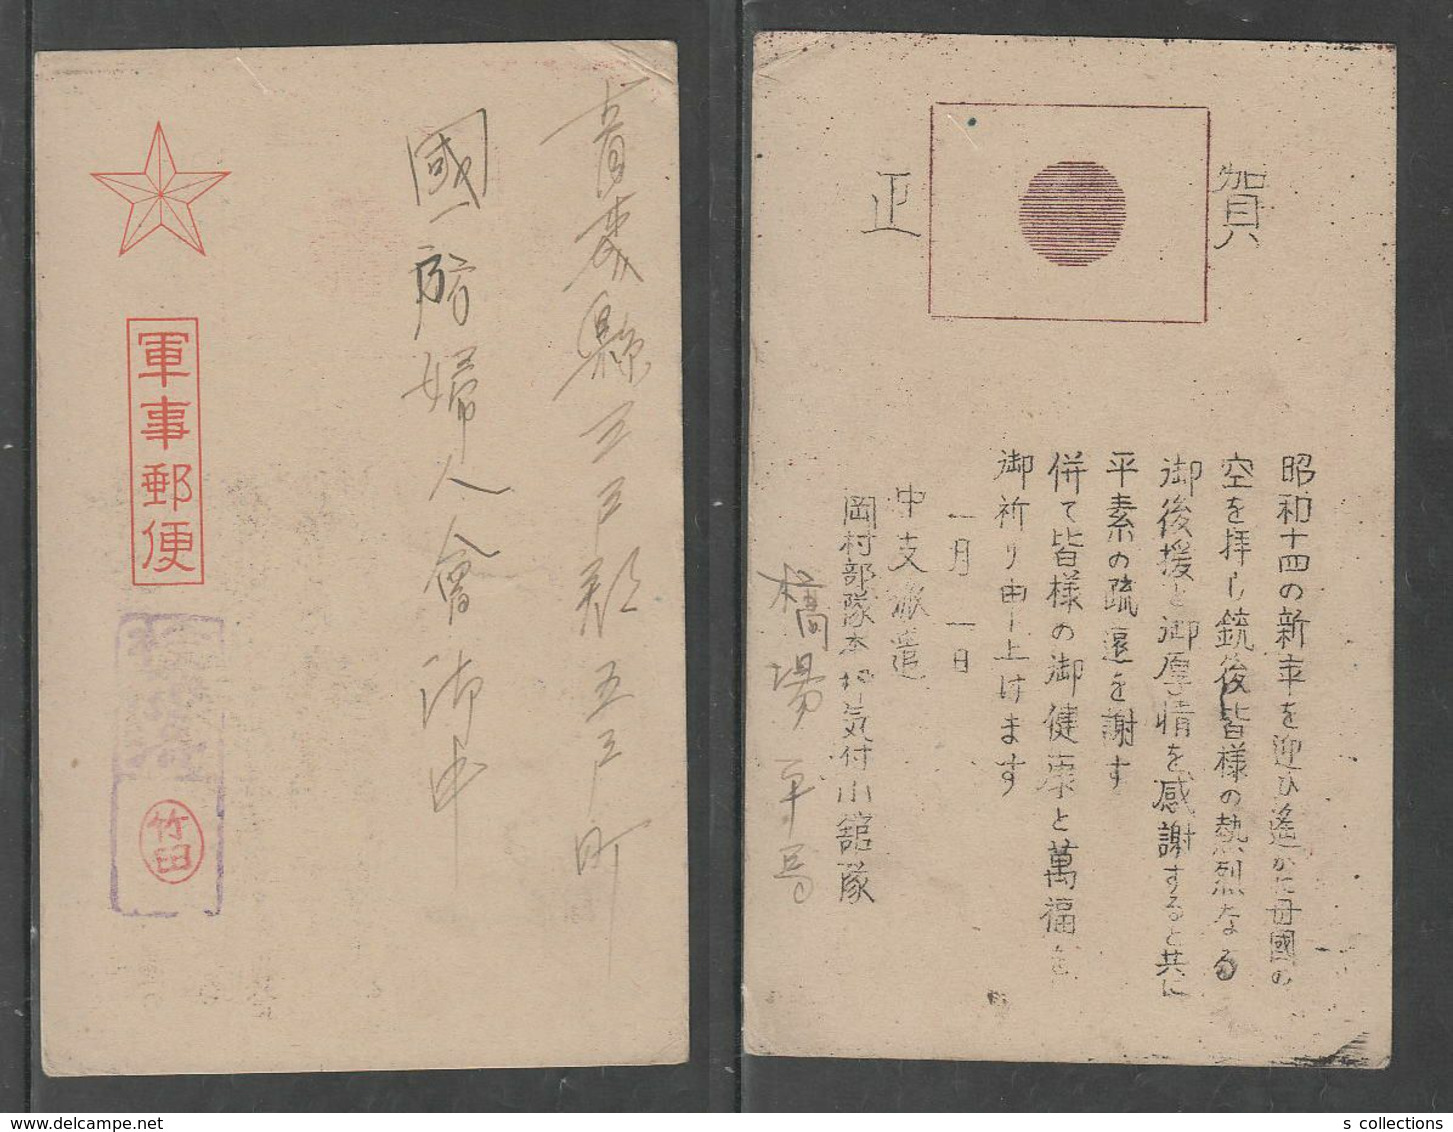 青森縣三戸郡五戸町
國防婦人會御中
軍事郵便
竹田
賀正
昭和十四の新年を迎ひ遙かに母國の
空を拝し銃後皆様の熱烈なる
御後援と御厚情を感謝すると共に
平素の疏遠を謝す
併て皆様の御健康と萬福を
御祈り申し上げます
一月一日
中支派遣
岡村部隊本部気付小舘隊
橋場
s collections
delcampe.net